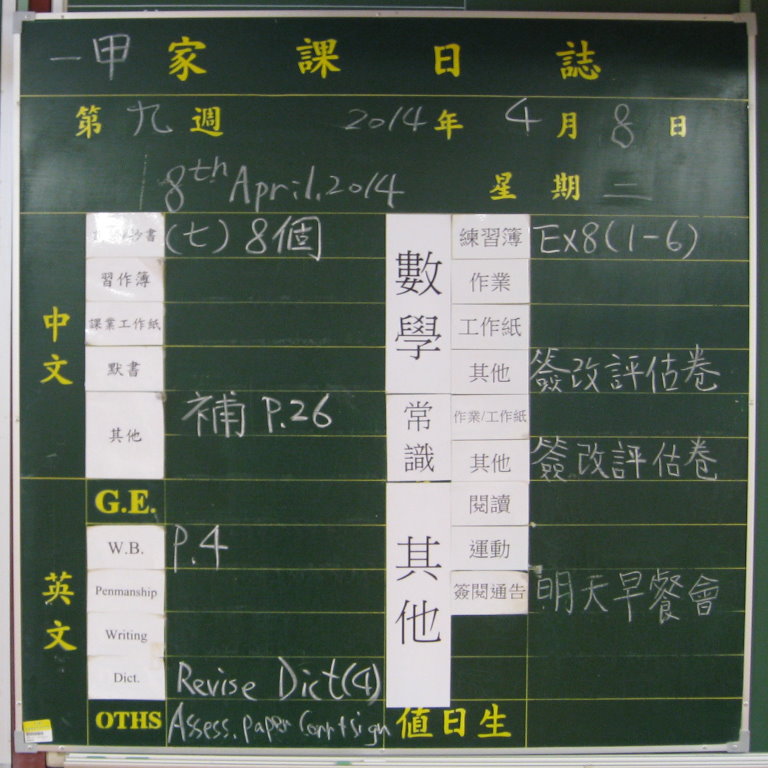 一甲家課日誌
第九週 2014年4月8日
8th April, 2014 星期二
中文
抄書 (七) 8個
習作簿
課業工作紙
默書
其他 補 P.26
英文
G.E.
W.B. P.4
Penmanship
Writing
Dict. Revise Dict(4)
OTHS Assess. paper Corr + sign
數學
練習簿 Ex8(1-6)
作業
工作紙
其他 簽改評估卷
常識
作業/工作紙
其他 簽改評估卷
其他
閱讀
運動
簽閱通告 明天早餐會
值日生